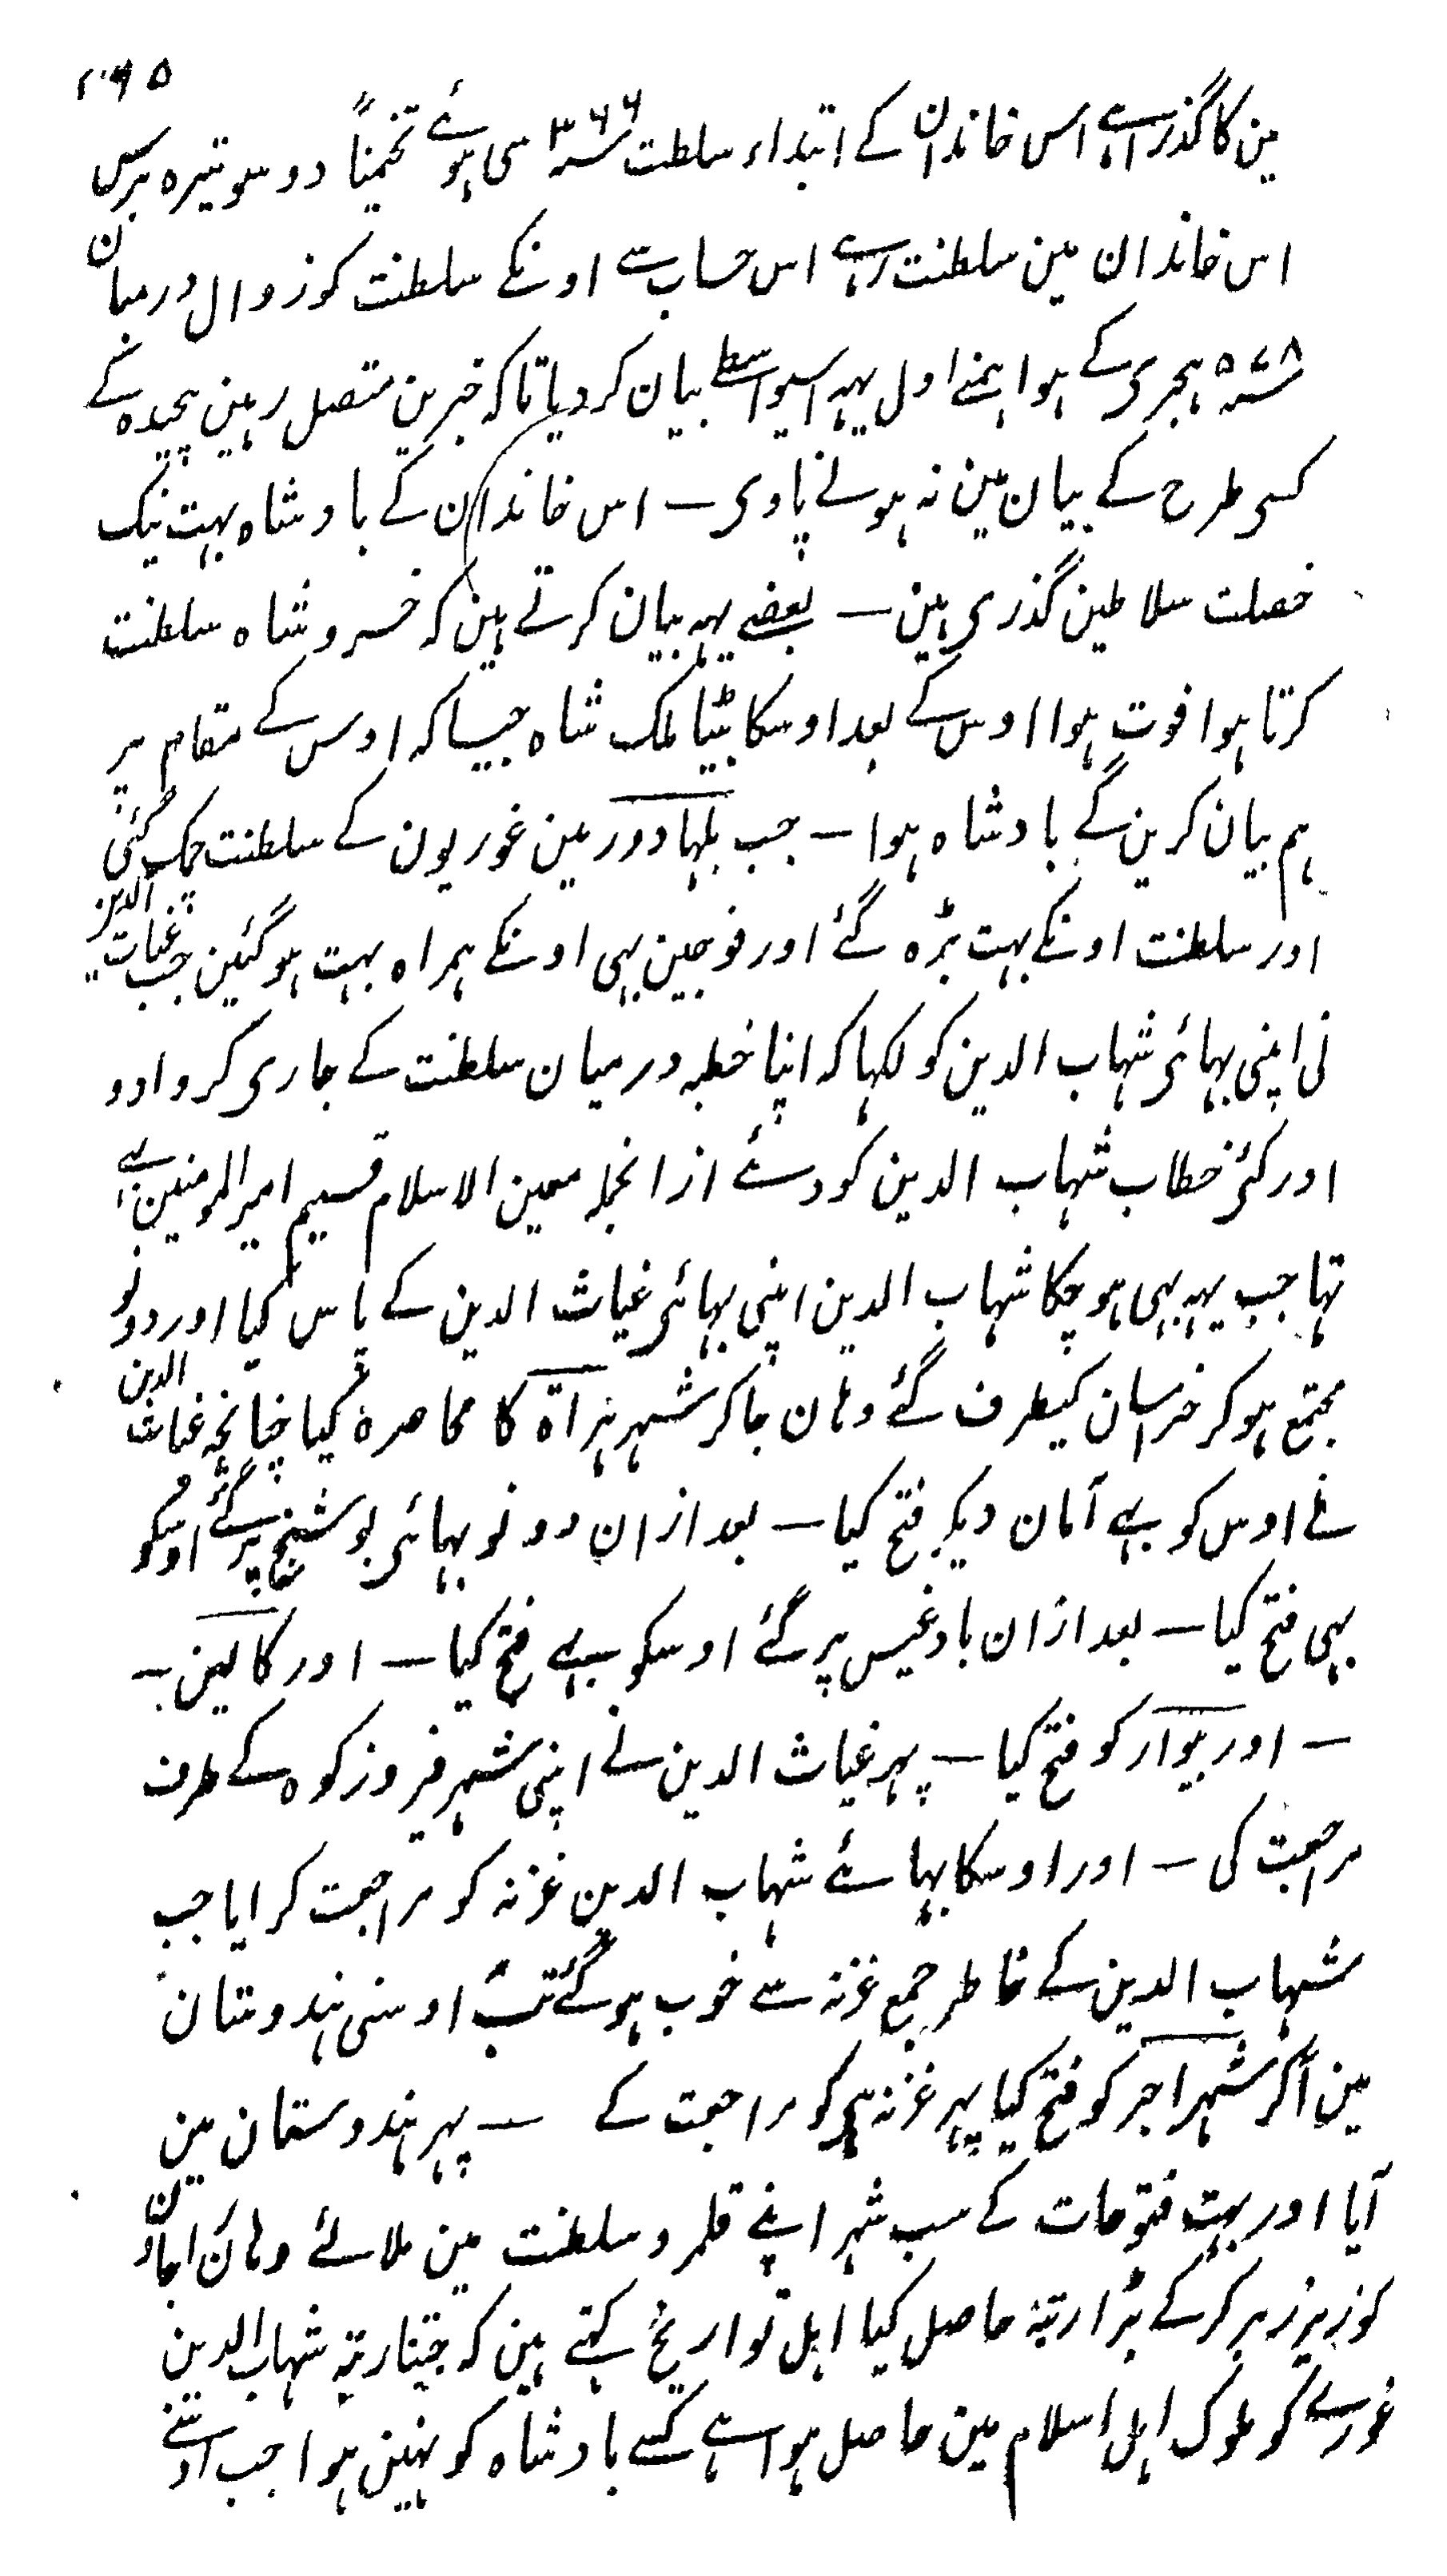 مین کا گذرا ہے اس خاندان کے ابتداء سلطنت ۳۶۶ سی ہوئے تخمیناً دو سو تیرہ برس
اس خاندان مین سلطنت رہے اس حساب سے اونکے سلطنت کو زوال درمیان
۵۷۸ ہجری کے ہوا ہمنے اول یہہ اسیواسطے بیان کر دیا تا کہ خبرین متصل رہین پیچیدہ گے
کسی طرح کے بیان مین نہ ہونے پاوی – اس خاندان کے بادشاہ بہت نیک
خصلت سلاطین گذری ہین – بعضے یہہ بیان کرتے ہین کہ خسرو شاہ سلطنت
کرتا ہوا فوت ہوا اوس کے بعد اوسکا بیٹا ملک شاہ جیسا کہ اوس کے مقام پر
ہم بیان کرین گے بادشاہ ہوا – جب لہاوور مین غوریون کے سلطنت جمک گئی
اور سلطنت اونکے بہت بڑہ گئے اور فوجین بہی اونکے ہمراہ بہت ہو گئین جب غیاث الدین
نی اپنی بہائی شہاب الدین کو لکہا کہ اپنا خطبہ درمیان سلطنت کے جاری کروادو
اور کئی خطاب شہاب الدین کو دئے ازانجملہ معین الاسلام قسیم امیر المومنین بہے
تہا جب یہہ بہی ہو چکا شہاب الدین اپنی بہائی غیاث الدین کے پاس گیا اور دونو
مجتمع ہو کر خراسان کیطرف گئے وہان جا کر شہر ہراۃ کا محاصرہ کیا چنانچہ غیاث الدین
نے اوس کو بہے آمان دیکر فتح کیا – بعد ازان دونو بہائی بوشنج پر گئے اوسکو
بہی فتح کیا – بعد ازان بادغیس پر گئے اوسکو بہے فتح کیا – اور کالین –
– اور بیوار کو فتح کیا – پہر غیاث الدین نے اپنی شہر فروزکوہ کے طرف
مراجعت کی – اور اوسکا بہائے شہاب الدین غزنہ کو مراجعت کرایا جب
شہاب الدین کے خاطر جمع غزنہ سے خوب ہو گئے تب اوسنی ہندوستان
مین آکر شہر اجر کو فتح کیا پہر غزنہ کو مراجعت کے – پہر ہندوستان مین
آیا اور بہت فتوحات کے سب شہر اپنے قلمرو سلطنت مین ملائے وہان
کو زیر زبر کر کے بڑا رتبہ حاصل کیا اہل تواریخ کہتے ہین کہ جتنا رتبہ شہاب الدین
غوریے کو ملوک اہل اسلام مین حاصل ہوا ہے کسے بادشاہ کو نہین ہوا جب اوسنے